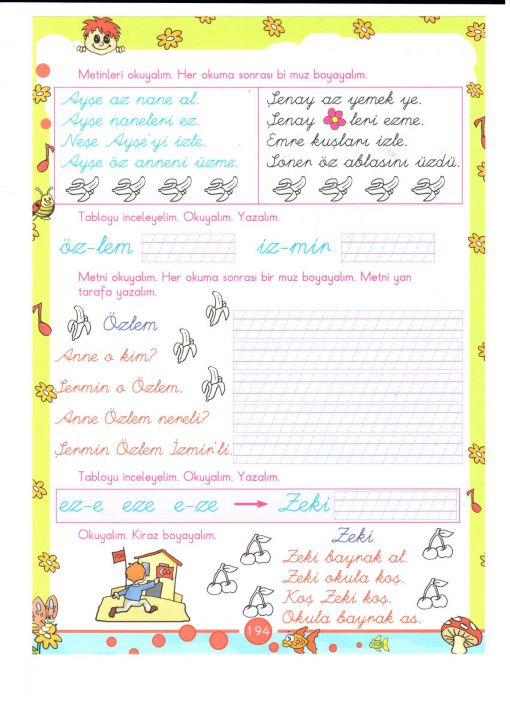 Metinleri okuyalım. Her okuma sonrası bi muz boyayalım.
Ayşe az nane al.
Ayşe naneleri ez.
Neşe Ayşe'yi izle.
Ayşe öz anneni üzme.
Şenay az yemek ye.
Şenay leri ezme.
Emre kuşları izle.
Soner öz ablasını üzdü.
Tabloyu inceleyelim. Okuyalım. Yazalım.
öz-lem iz-mir
Metni okuyalım. Her okuma sonrası bir muz boyayalım. Metni yan
tarafa yazalım.
Özlem
Anne o kim?
Şermin o Özlem.
Anne Özlem nereli?
Şermin Özlem İzmir'li.
Tabloyu inceleyelim. Okuyalım. Yazalım.
ez-e eze e-ze Zeki
Okuyalım. Kiraz boyayalım.
Zeki
Zeki bayrak al.
Zeki okula koş.
Koş Zeki koş.
Okula bayrak as.
194